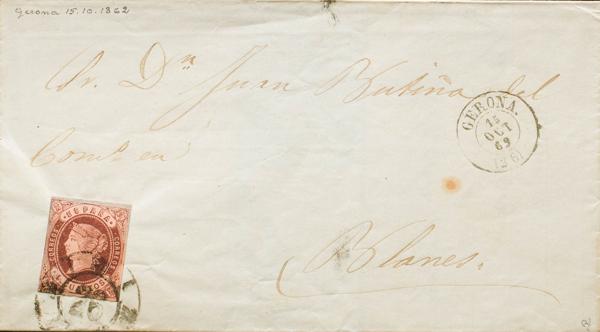 Gerona 15.10.1862
Sr. Dn Juan Butiña del
Comº en
Blanes.
GERONA.
15
OCT
62
ESPAÑA
CORREOS
CORREOS
4 CUARTOS